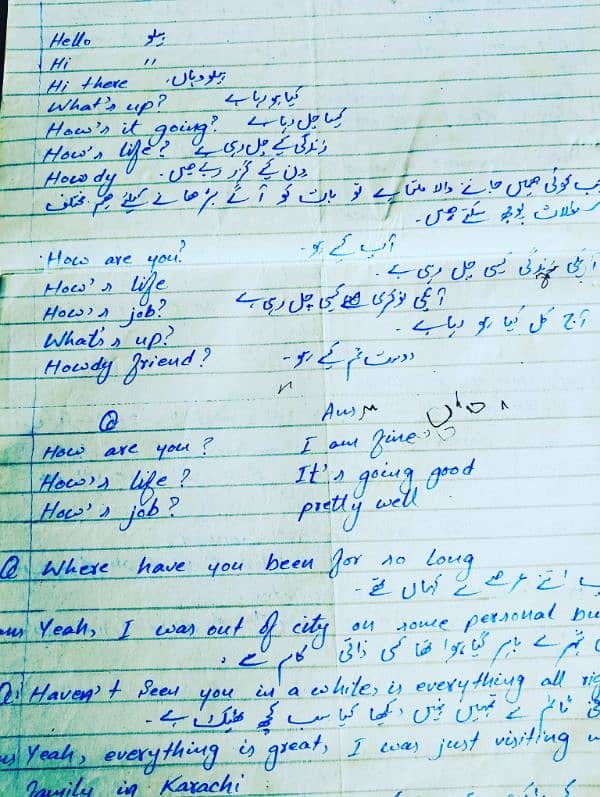 Hello ہیلو
Hi "
Hi there ہیلو وہاں.
What's up? کیا ہو رہا ہے
How's it going? کیسا چل رہا ہے
How's life? زندگی کیسے چل رہی ہے
Howdy دن کیسے گزر رہے ہیں.
جب کوئی ہمیں جاننے والا ملتا ہے تو بات کو آگے بڑھانے کیلئے ہم مختلف
سوالات پوچھ سکتے ہیں.
How are you? آپ کیسے ہو.
How's life آپکی زندگی کیسی چل رہی ہے.
How's job? آپکی نوکری کیسی چل رہی ہے
What's up? آج کل کیا ہو رہا ہے.
Howdy friend? دوست تم کیسے ہو.
Q Ans
How are you? I am fine
How's life? It's going good
How's job? pretty well
Q Where have you been for so long
اتنے عرصے سے کہاں تھے.
Ans Yeah, I was out of city on some personal bu
شہر سے باہر گیا ہوا تھا کسی ذاتی کام سے.
Q: Haven't seen you in a while, is everything all rig
ٹائم سے تمہیں نہیں دیکھا کیا سب کچھ ٹھیک ہے.
Ans Yeah, everything is great, I was just visiting
family in Karachi